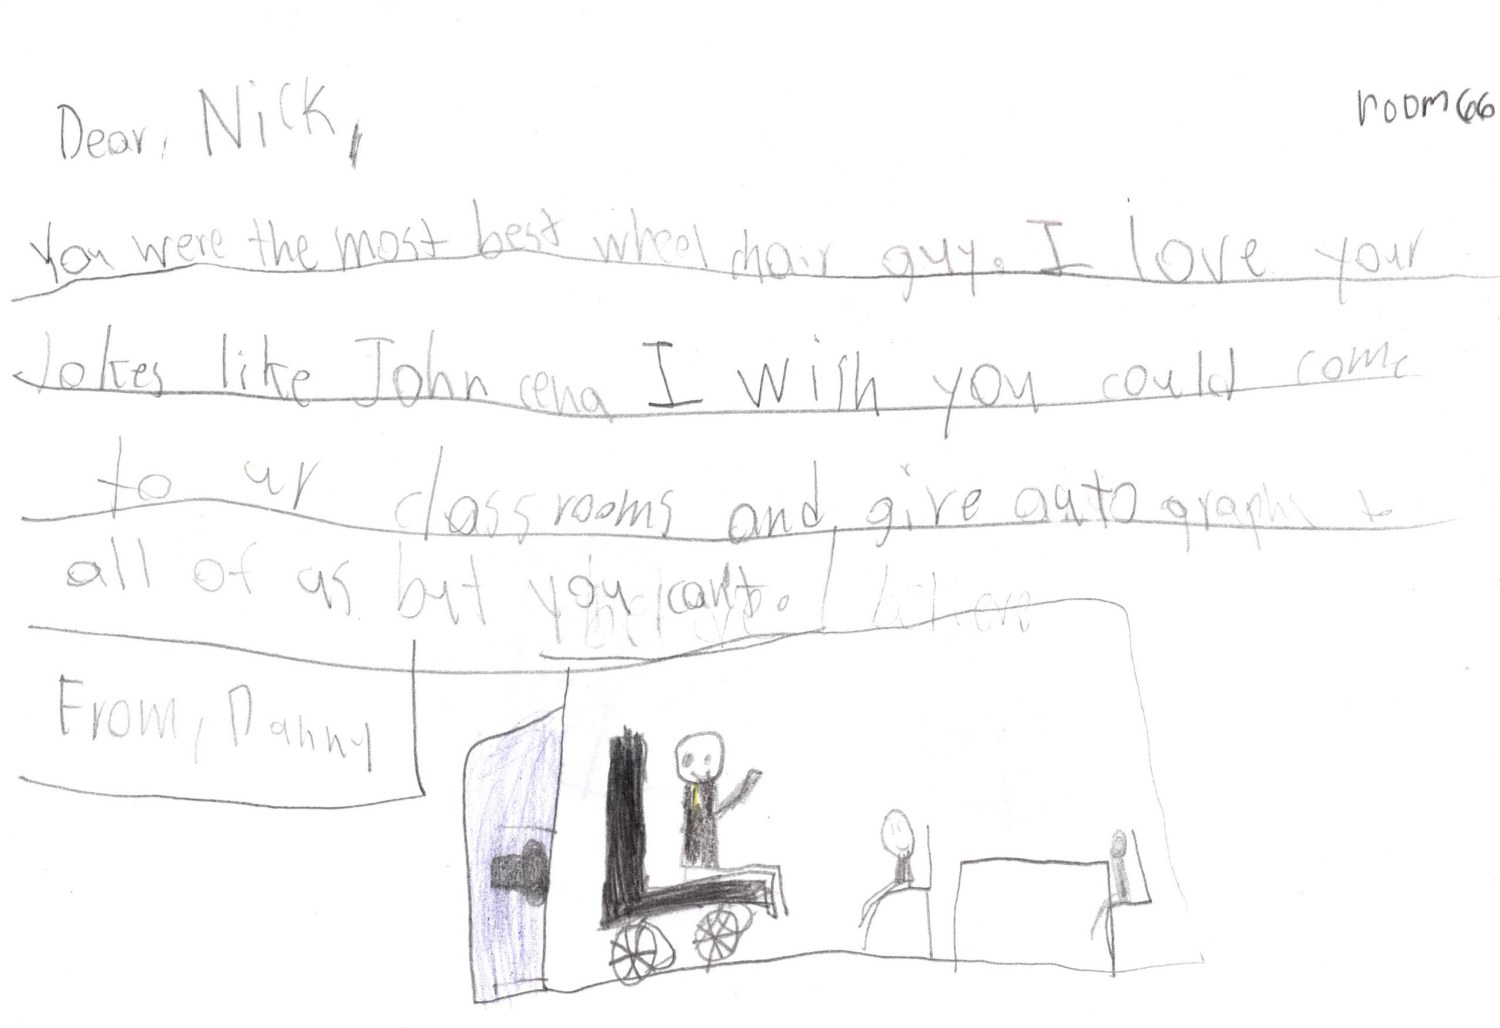 room 66
Dear, Nick,
You were the most best wheel chair guy. I love your
Jokes like John cena I wish you could come
to ur classrooms and give auto graphs to
all of us but you cant.
From, Danny